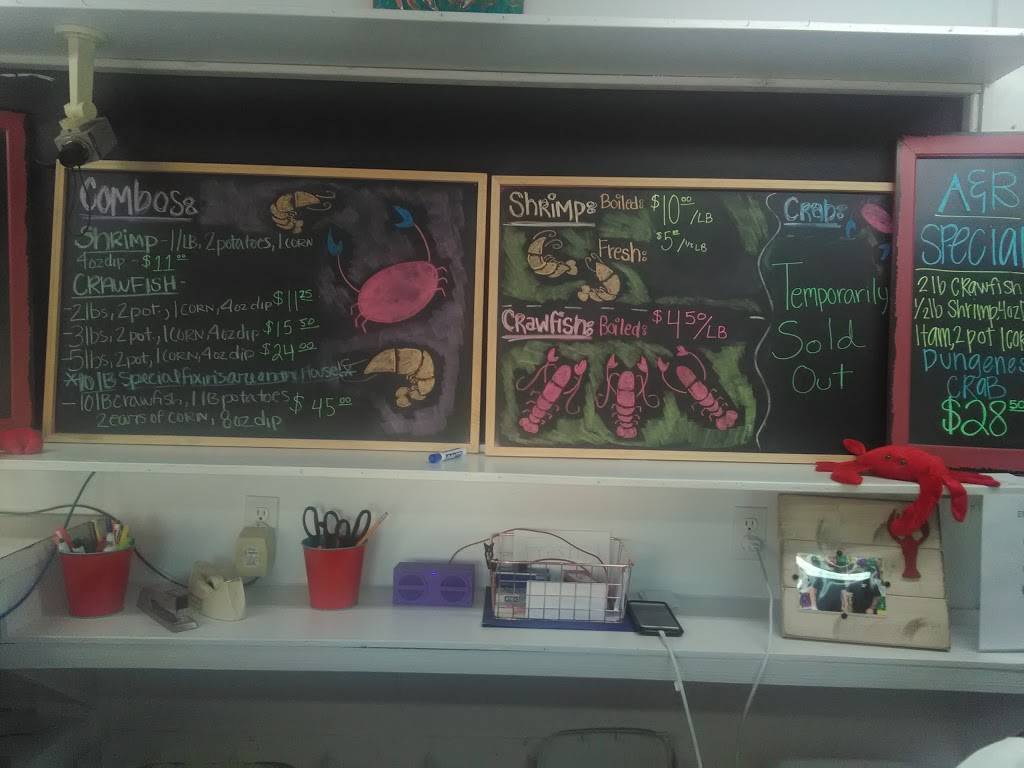 Combos:
Shrimp - 1/LB, 2 potatoes, 1 corn
4oz dip - $11.00
CRAWFISH -
- 2lbs, 2 pot, 1 CORN, 4oz dip $11.25
- 3lbs, 2 pot, 1 CORN, 4oz dip $15.50
- 5lbs, 2 pot, 1 CORN, 4oz dip $24.00
*10 LB Special fixins are on House*
- 10 LB Crawfish, 1 LB potatoes
2 ears of CORN, 8oz dip $45.00
Shrimp: Boiled: $10.00/LB
$5.00/½LB
Fresh:
Crawfish: Boiled: $4.50/LB
Crab:
Temporarily
Sold
Out
A&B
SPECIAL
2 lb Crawfish
½lb Shrimp 4oz
1 tam, 2 pot 1 cor
Dungenes
CRAB
$28.50